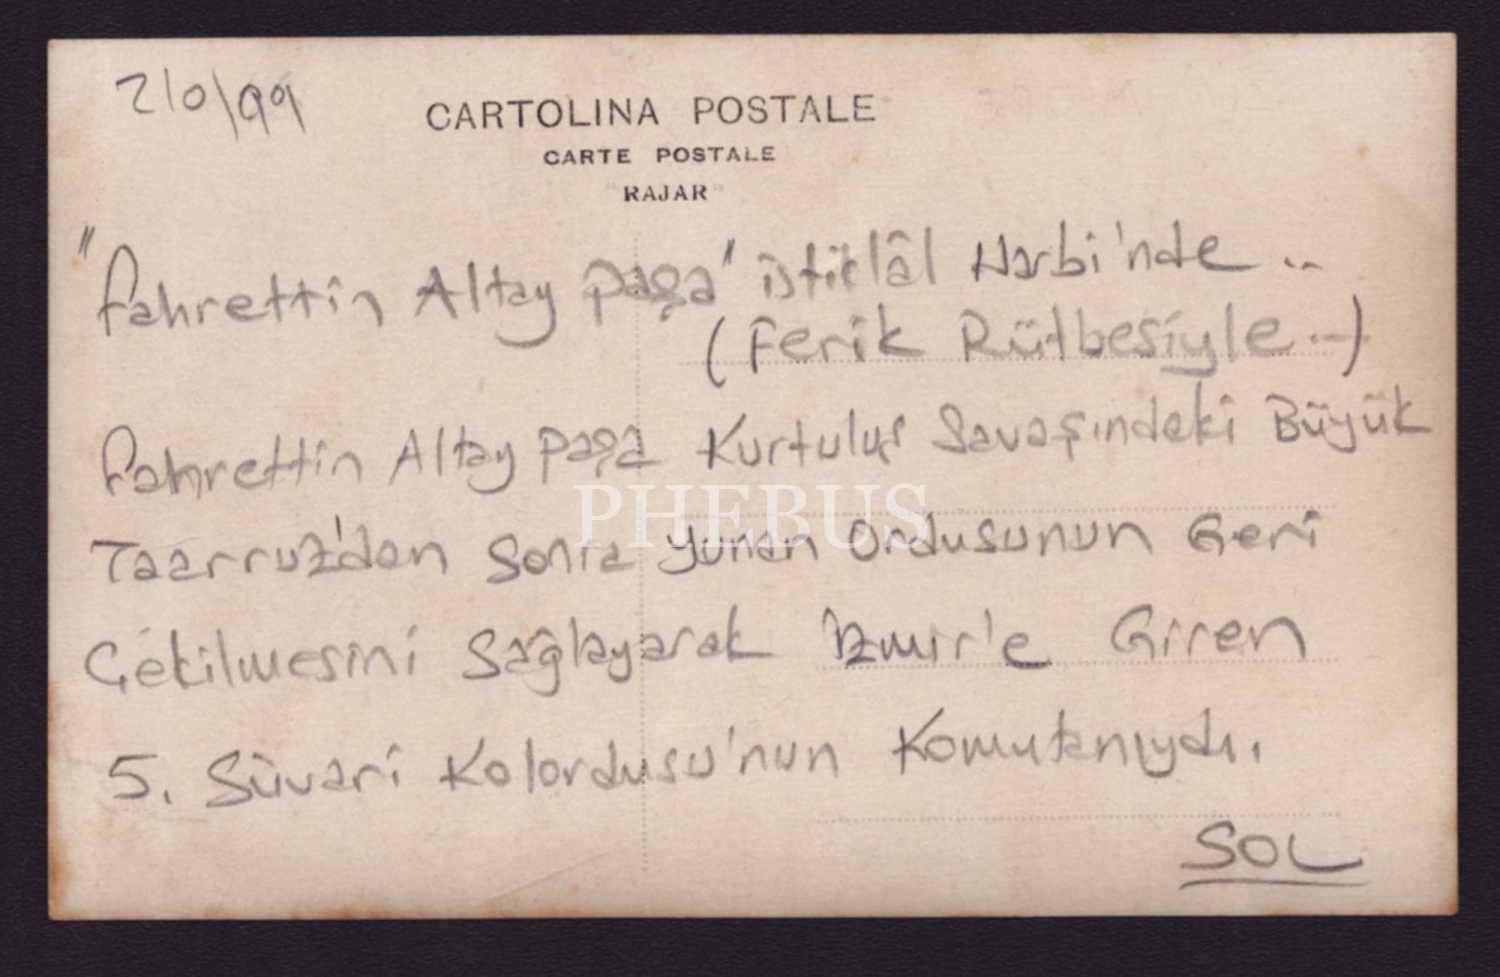 210/99
CARTOLINA POSTALE
CARTE POSTALE
"RAJAR"
"Fahrettin Altay Paşa" istiklâl Harbi'nde ..
(Ferik Rütbesiyle ..)
Fahrettin Altay Paşa Kurtuluş Savaşındaki Büyük
Taarruz'dan Sonra Yunan Ordusunun Geri
Çekilmesini Sağlayarak İzmir'e Giren
5. Süvari Kolordusu'nun Komutanıydı.
SOL
PHEBUS